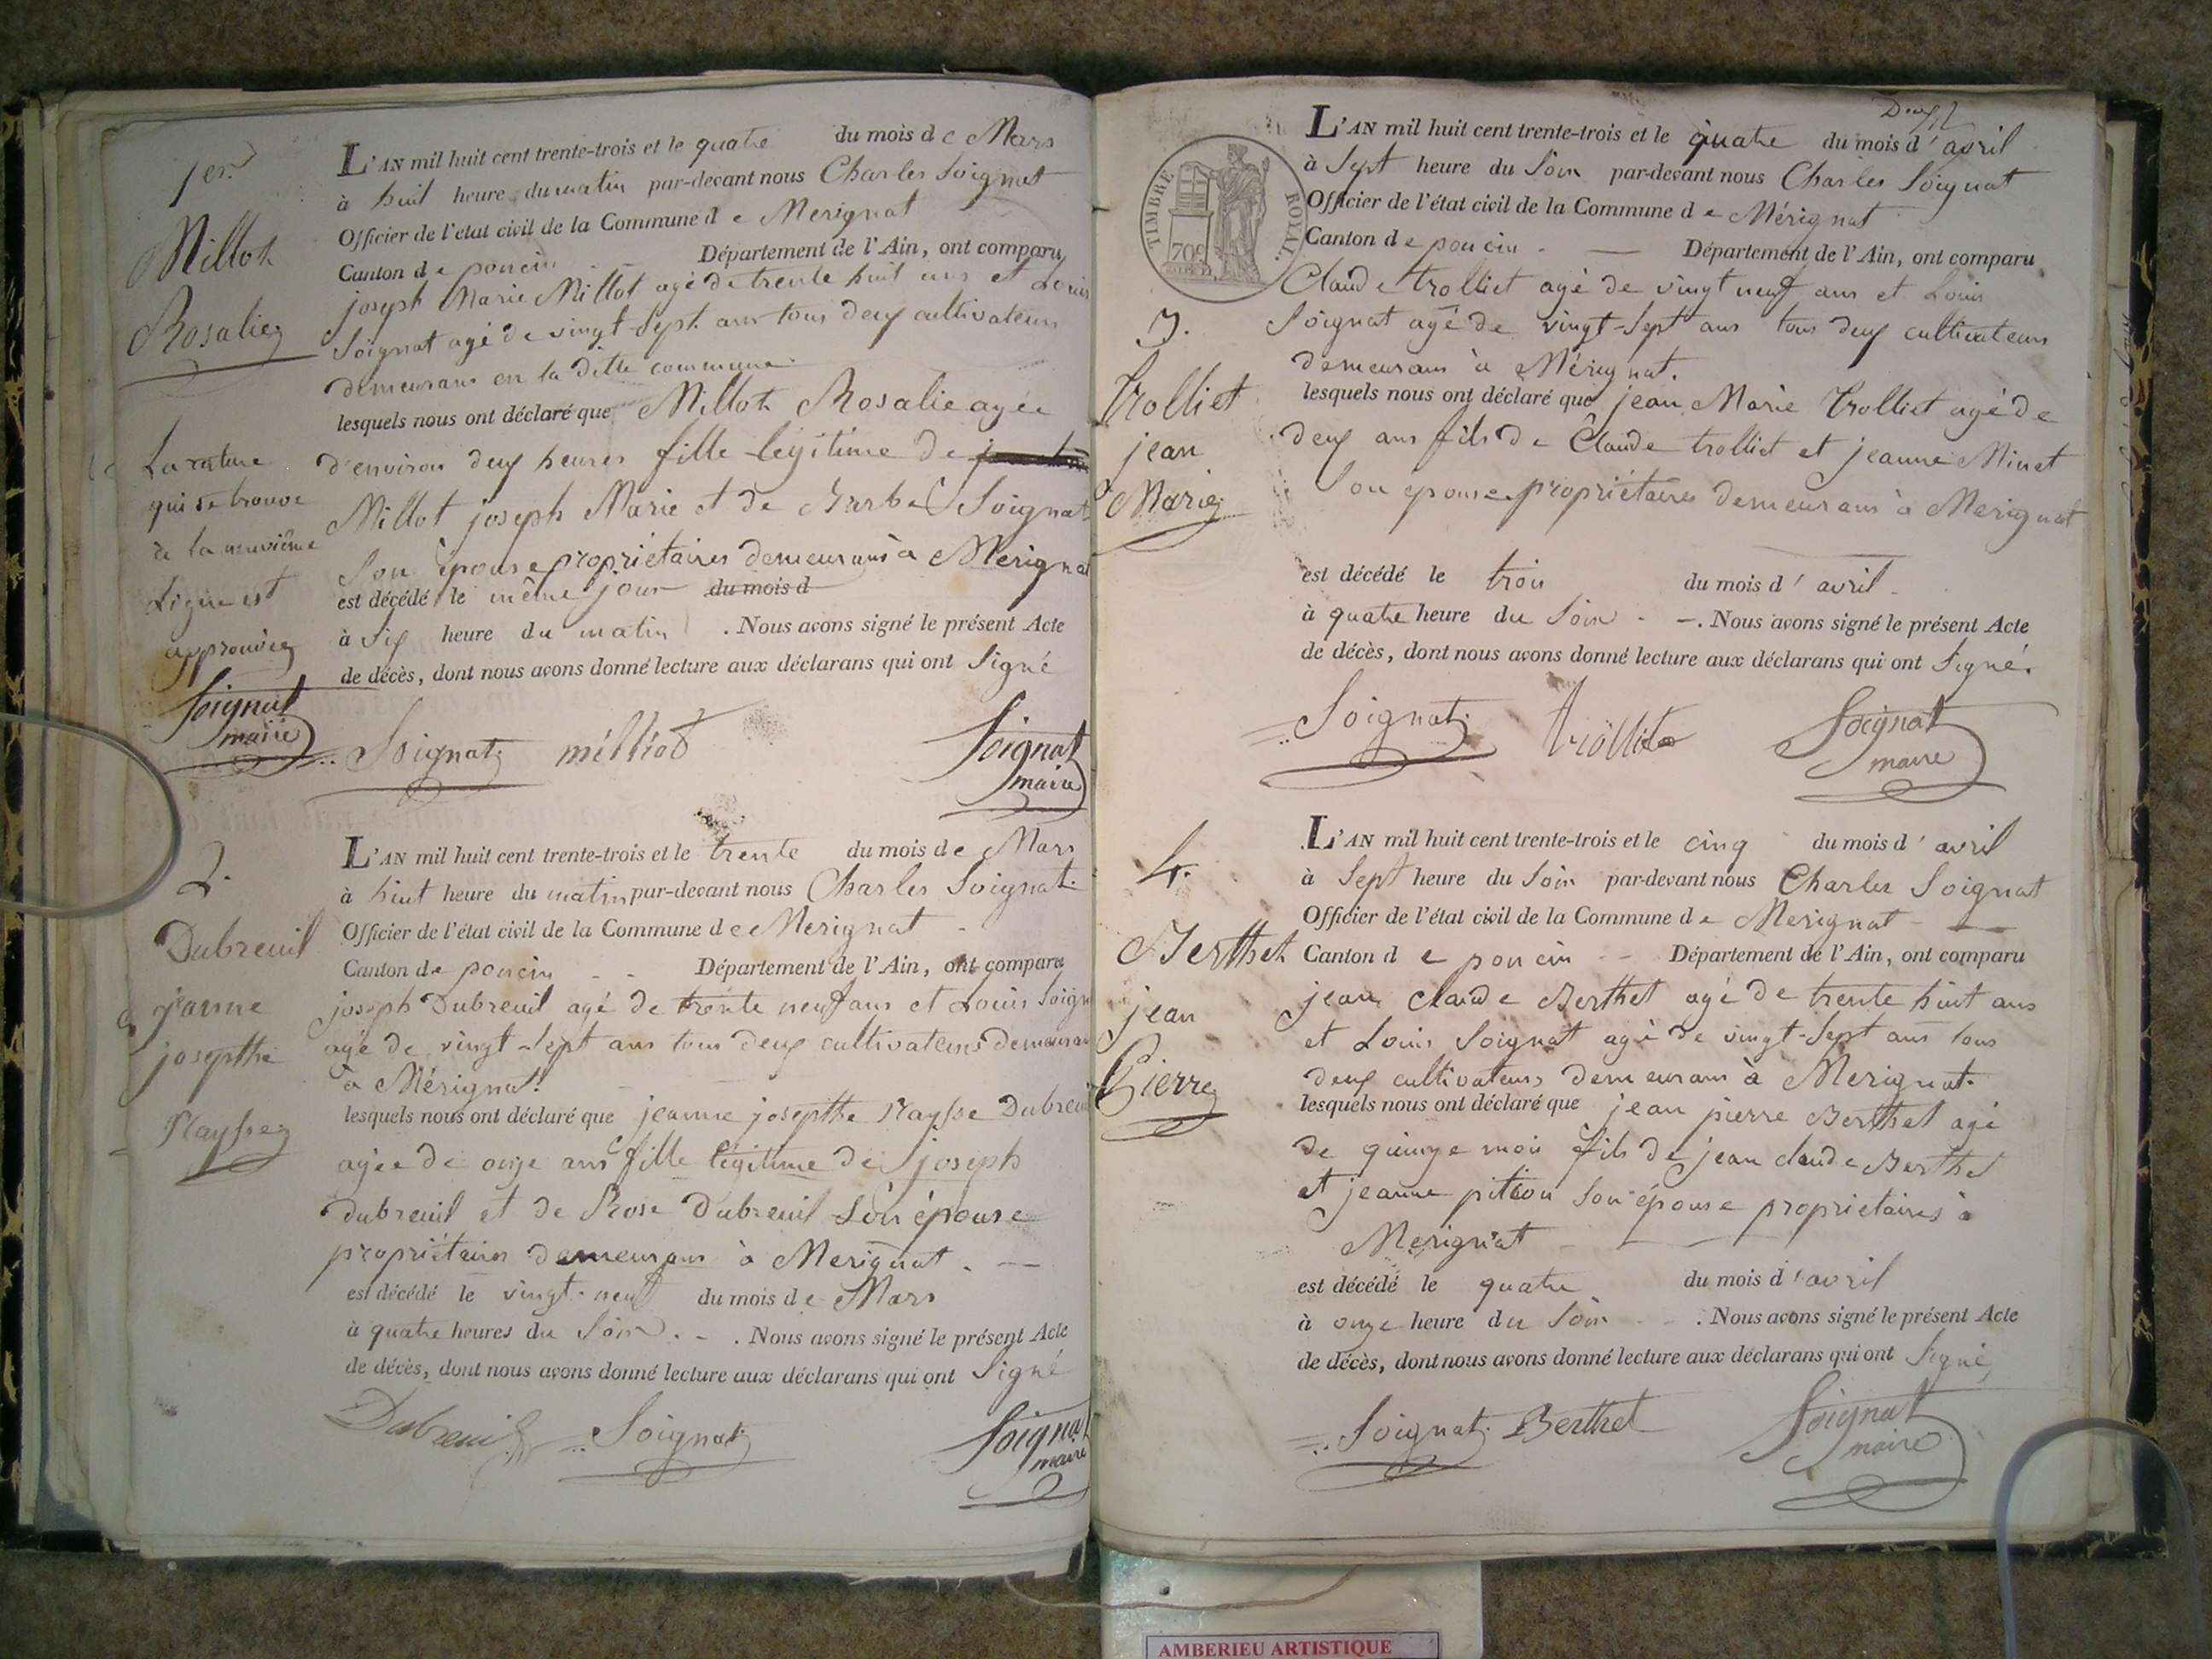 1er.
Millot
Rosalie
La rature
qui se trouve
à la neuvième
Ligne est
approuvée
Soignat
maire
L'AN mil huit cent trente-trois et le quatre du mois de Mars
à huit heure du matin par-devant nous Charles Soignat
Officier de l'état civil de la Commune de Merignat
Canton de poncin Département de l'Ain, ont comparu
joseph Marie Millot agé de trente huit ans et Louis
Soignat agé de vingt-sept ans tous deux cultivateurs
demeurans en la ditte commune
lesquels nous ont déclaré que Millot Rosalie agée
d'environ deux heures fille légitime de
Millot joseph Marie et de Barbe Soignat
Son épouse propriétaires demeurans à Merignat
est décédé le même jour du mois d
à Six heure du matin . Nous avons signé le présent Acte
de décès, dont nous avons donné lecture aux déclarans qui ont Signé
Soignat milliot Soignat
maire
2.
Dubreuil
jeanne
josepthe
L'AN mil huit cent trente-trois et le trente du mois de Mars
à huit heure du matin par-devant nous Charles Soignat
Officier de l'état civil de la Commune de Merignat
Canton de poncin Département de l'Ain, ont comparu
joseph Dubreuil agé de trente neuf ans et Louis Soign
agé de vingt-sept ans tous deux cultivateurs demeuran
à Mérignat.
lesquels nous ont déclaré que jeanne josepthe Dubreuil
agée de onze ans fille légitime de joseph
Dubreuil et de Rose Dubreuil Son épouse
propriétaires demeurans à Merignat.
est décédé le vingt-neuf du mois de Mars
à quatre heures du Soir. . Nous avons signé le présent Acte
de décès, dont nous avons donné lecture aux déclarans qui ont Signé
Dubreuil Soignat Soignat
maire
TIMBRE ROYAL
70c
3.
Trolliet
jean
Marie
L'AN mil huit cent trente-trois et le quatre du mois d'avril
à Sept heure du Soir par-devant nous Charles Soignat
Officier de l'état civil de la Commune de Mérignat
Canton de poncin. Département de l'Ain, ont comparu
Claude trolliet agé de vingt neuf ans et Louis
Soignat agé de vingt-sept ans tous deux cultivateurs
demeurans à Mérignat.
lesquels nous ont déclaré que jean Marie Trolliet agé de
deux ans fils de Claude trolliet et jeanne Minet
Son epouse propriétaires demeurans à Merignat
est décédé le trois du mois d'avril
à quatre heure du Soir . Nous avons signé le présent Acte
de décès, dont nous avons donné lecture aux déclarans qui ont Signé.
Soignat Soignat
maire
4.
Berthet
jean
Pierre
L'AN mil huit cent trente-trois et le cinq du mois d'avril
à Sept heure du Soir par-devant nous Charles Soignat
Officier de l'état civil de la Commune de Merignat
Canton de poncin Département de l'Ain, ont comparu
jean Claude Berthet agé de trente huit ans
et Louis Soignat agé de vingt-sept ans tous
deux cultivateurs demeurans à Merignat.
lesquels nous ont déclaré que jean pierre Berthet agé
de quinze mois fils de jean claude Berthet
et jeanne pition Son épouse proprietaires à
Merignat
est décédé le quatre du mois d'avril
à onze heure du Soir . Nous avons signé le présent Acte
de décès, dont nous avons donné lecture aux déclarans qui ont Signé
Soignat Berthet Soignat
maire
AMBERIEU ARTISTIQUE